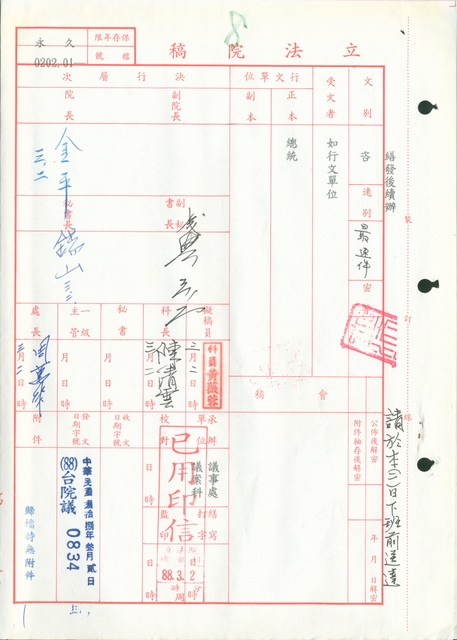 立法院稿
8
保存年限
永久
檔號
0202.01
文別
咨
速別
最速件
密
受文者
如行文單位
行文單位
正本
總統
副本
決行層次
副院長
院長
金平
三、二
副秘書長
秘書長
擬稿員
科員黃薇蓉
三、二
科長
陳清雲
三、二
秘書
一級主管
處長
月
日
時
會稿
繕發後續辦
裝
訂
線
請於本(二)日下班前送達
公佈後解密
附件抽存後解密
年月日解密
承辦單位
議事處
議案科
校對
繕寫
打字
監印
已用印信
88.3.2
收文
日期
字號
發文
日期
字號
中華民國捌拾捌年叁月貳日
(88)台院議0834
附件
歸檔時無附件